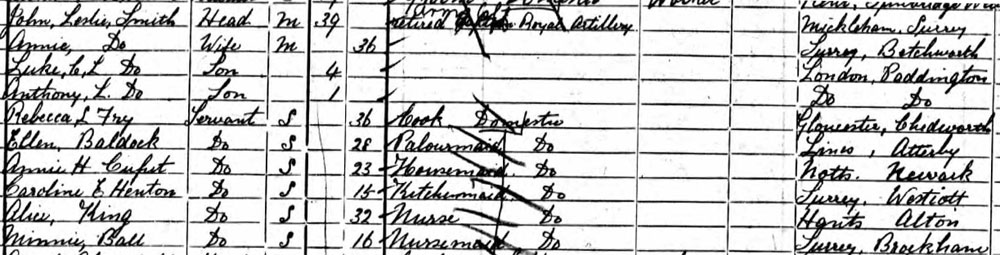 John, Leslie, Smith Head M 39 retired Royal Artillery Mickleham, Surrey
Annie, Do Wife M 36 Surrey, Betchworth
Luke, C, L Do Son 4 London, Paddington
Anthony, L. Do Son 1 Do Do
Rebecca L Fry Servant S 36 Cook Domestic Gloucester, Chedworth
Ellen, Baldock Do S 28 Palourmaid Do Lincs, Atterby
Annie H Do S 23 Housemaid Do Notts. Newark
Caroline E Henton Do S 15 Kitchenmaid Do Surrey. Westcott
Alice, King Do S 32 Nurse Do Hants Alton
Minnie, Ball Do S 16 Nursemaid Do Surrey, Brockham